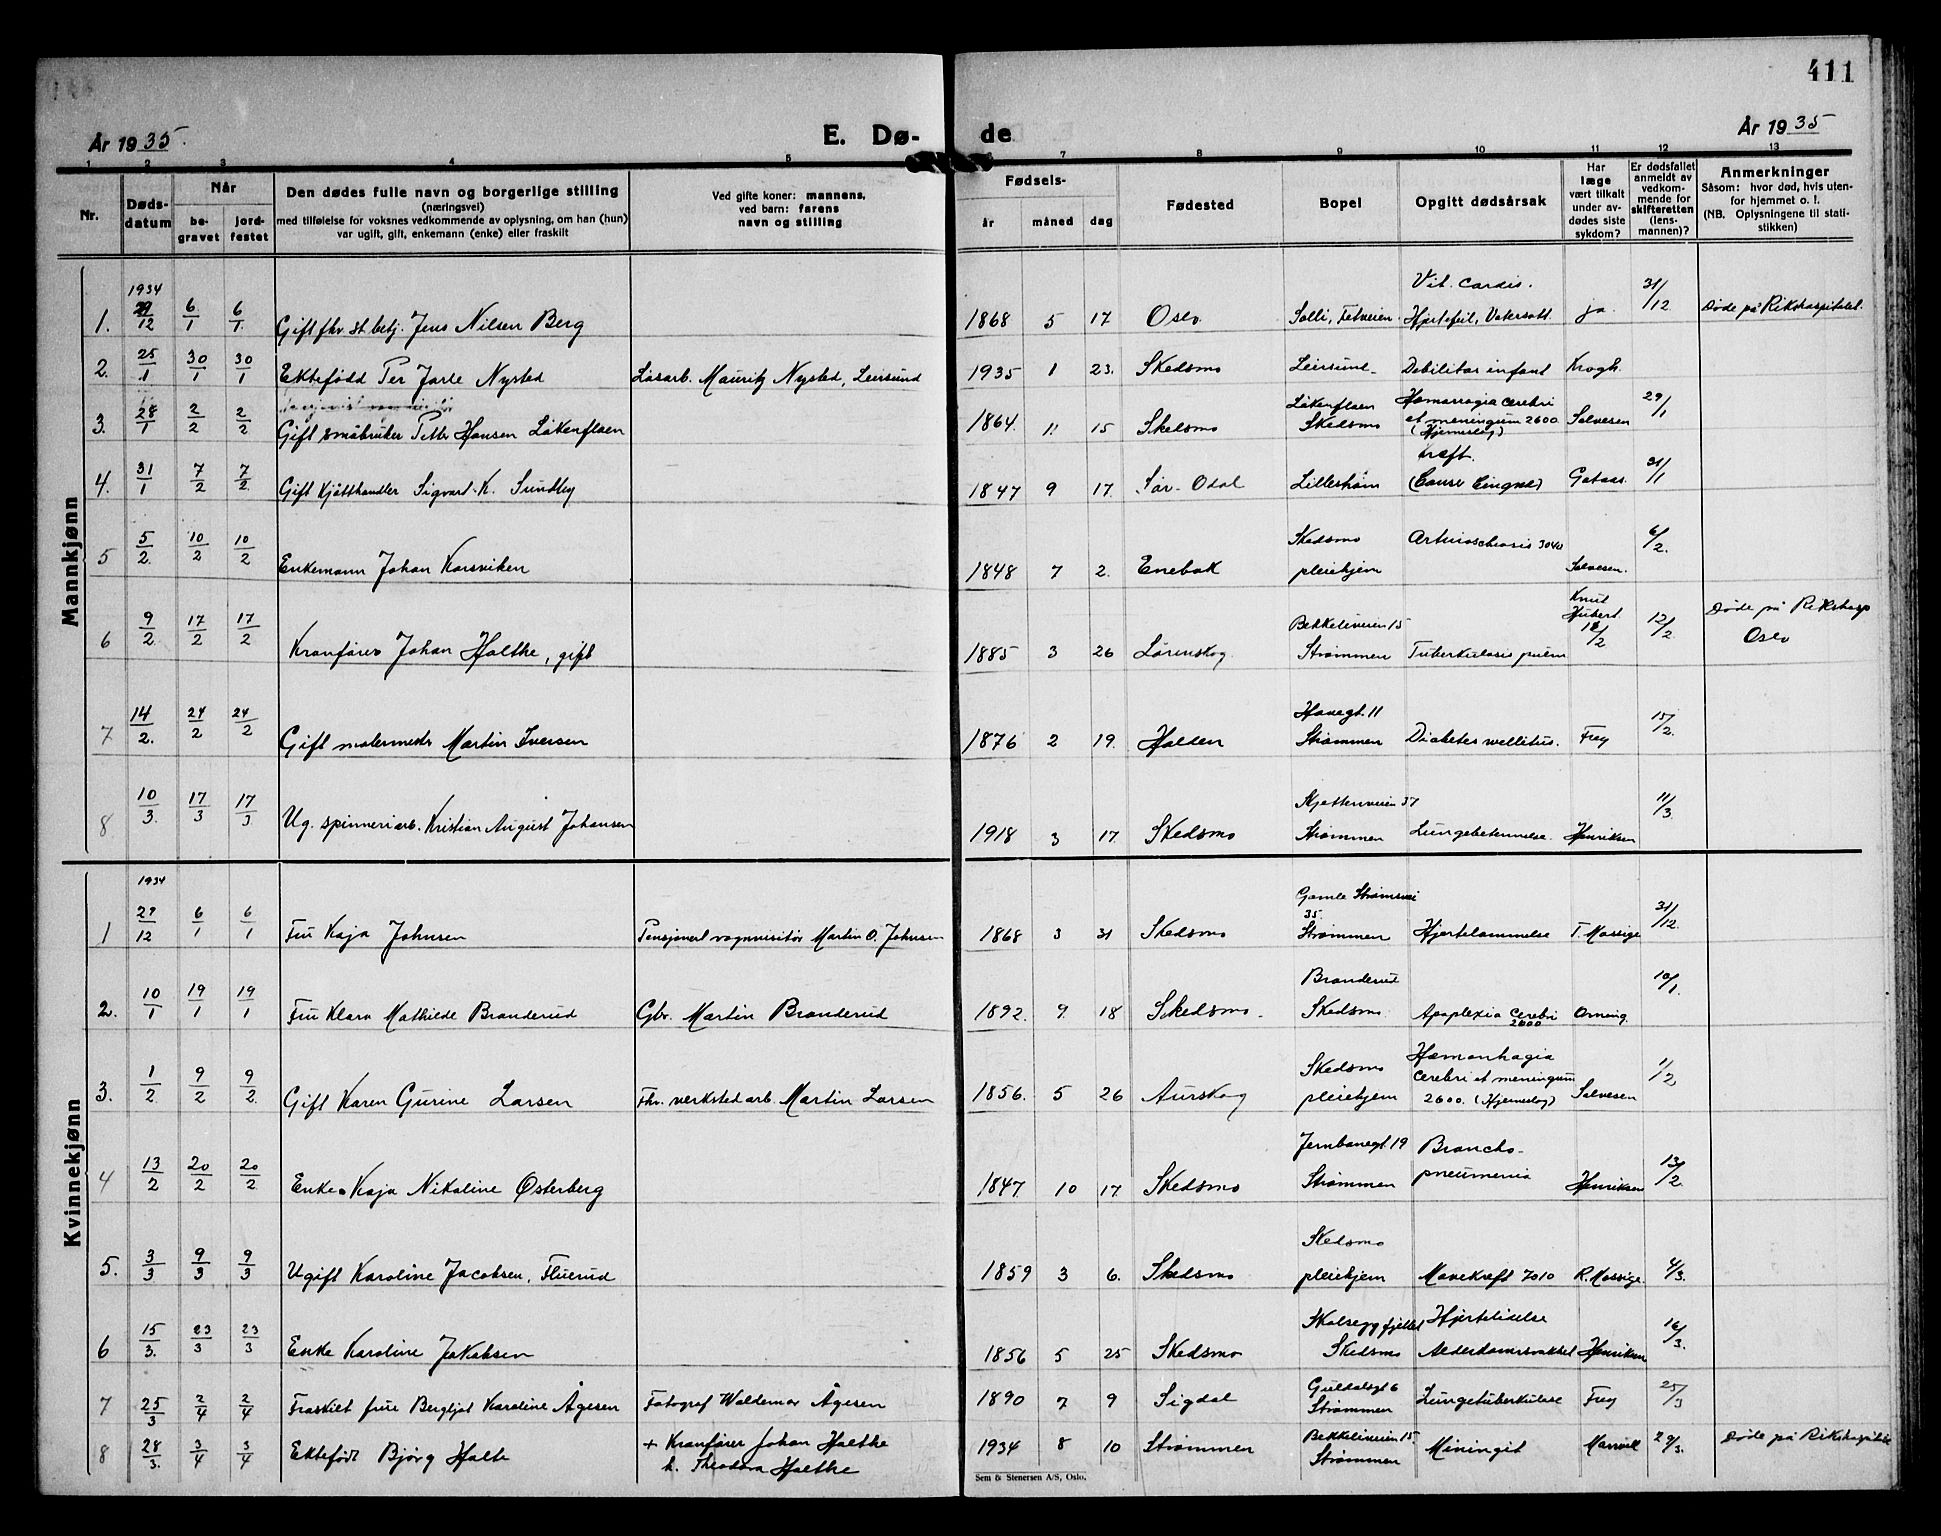 411
År 1935.
E. Dø-
de
År 1935
1 2 3 4 5 6 7 8 9 10 11 12 13
Nr.
Døds-
datum
Når
be-
gravet
jord-
festet
Den dødes fulle navn og borgerlige stilling
(næringsvei)
med tilføielse for voksnes vedkommende av oplysning, om han (hun)
var ugift, gift, enkemann (enke) eller fraskilt
Ved gifte koner: mannens,
ved barn: farens
navn og stilling
Fødsels-
år måned dag
Fødested
Bopel
Opgitt dødsårsak
Har
læge
vært tilkalt
under av-
dødes siste
sykdom?
Er dødsfallet
anmeldt av
vedkom-
mende for
skifteretten
(lens-
mannen)?
Anmerkninger
Såsom: hvor død, hvis uten-
for hjemmet o. l.
(NB. Oplysningene til stati-
stikken)
Mannkjønn
1934
1. 29/12 6/1 6/1. Gift fhv. st.betj. Jens Nilsen Berg 1868 5 17 Oslo Solli, Fetveien Vit. cordis. Hjertefeil, Vatersott ja 31/12 Døde på Rikshospitalet
2. 25/1 30/1 30/1 Ektefødd Per Jarle Nysted Løsarb. Mauritz Nysted, Leirsund 1935 1 23. Skedsmo Leirsund Debilitas infant Krogh.
3. 28/1 2/2 2/2 Gift småbruker Petter Hansen Løkenflaen 1864. 11 15 Skedsmo Løkenflaen Skedsmo Hæmorragia cerebri et meningum 2600 (Hjerneslag) Solvesen 29/1
4. 31/1 7/2 7/2. Gift Kjøtthandler Sigvart K. Sundby 1847 9 17. Sør-Odal Lillestrøm Kreft. (Cancer Lingvæ) Gotaas. 31/1
5 5/2. 10/2 10/2 Enkemann Johan Korsviken 1848 7 2. Enebak Skedsmo pleiehjem Arteriosclerosis 3040 Solvesen. 6/2.
6 9/2. 17/2 17/2 Kranfører Johan Holtke, gift 1885 3 26 Lørenskog Bekkeliveien 15 Strømmen Tuberkulosis pulm Knut Hubert 12/2 12/2 Døde på Rikshosp Oslo
7 14/2. 24/2 24/2 Gift malermestr Martin Iversen 1876 2 19. Halden Havegt. 11 Strømmen Diabetes mellitus. Frey 15/2.
8 10/3. 17/3 17/3 Ug. spinneriarb. Kristian August Johansen 1918 3 17. Skedsmo Skjettenveien 37 Strømmen Lungebetennelse. Henriksen 11/3.
Kvinnekjønn
1934
1 29/12 6/1 6/1 Fru Kaja Johnsen Pensjonert vognvisitør Martin O. Johnsen 1868 3 31 Skedsmo Gamle Strømsvei 35. Strømmen Hjertelammelse T. Mossige 31/12.
2. 10/1 19/1 19/1 Fru Klara Mathilde Branderud Gbr. Martin Branderud 1892. 9. 18 Skedsmo. Branderud Skedsmo. Apoplexia cerebri 2600 Orning. 10/1.
3. 1/2 9/2 9/2. Gift Karen Gurine Larsen Fhv. verkstedarb. Martin Larsen 1856. 5 26 Aurskog Skedsmo pleiehjem Hæmorrhagia cerebri et meningum 2600. (Hjerneslag) Solvesen 1/2
4 13/2 20/2 20/2. Enke Kaja Nikoline Østerberg 1847. 10 17. Skedsmo Jernbanegt. 19 Strømmen Broncho-pneumonia Henriksen 13/2.
5. 3/3 9/3 9/3 Ugift Karoline Jacobsen, Fluerud 1859 3 6. Skedsmo Skedsmo pleiehjem Mavekreft 7010 R. Mossige. 4/3.
6 15/3. 23/3 23/3 Enke Karoline Jakobsen 1856 5 25 Skedsmo Skolseggfjellet Skedsmo Hjertelidelse Alderdomssvakhet Henriksen 16/3.
7 25/3 2/4 2/4 Fraskilt frue Bergljot Karoline Ågesen Fotograf Waldemar Ågesen 1890 7 9 Sigdal Guldalsgt 6 Strømmen Lungetuberkulose Frey 25/3
8 28/3. 3/4 3/4 Ektefødt Bjørg Holte + Kranfører Johan Holtke h. Theodora Holtke 1934 8 10 Strømmen Bekkeliveien 15. Strømmen Miningit 29/3. Døde på Rikshospitalet
Sem & Stenersen A/S, Oslo.